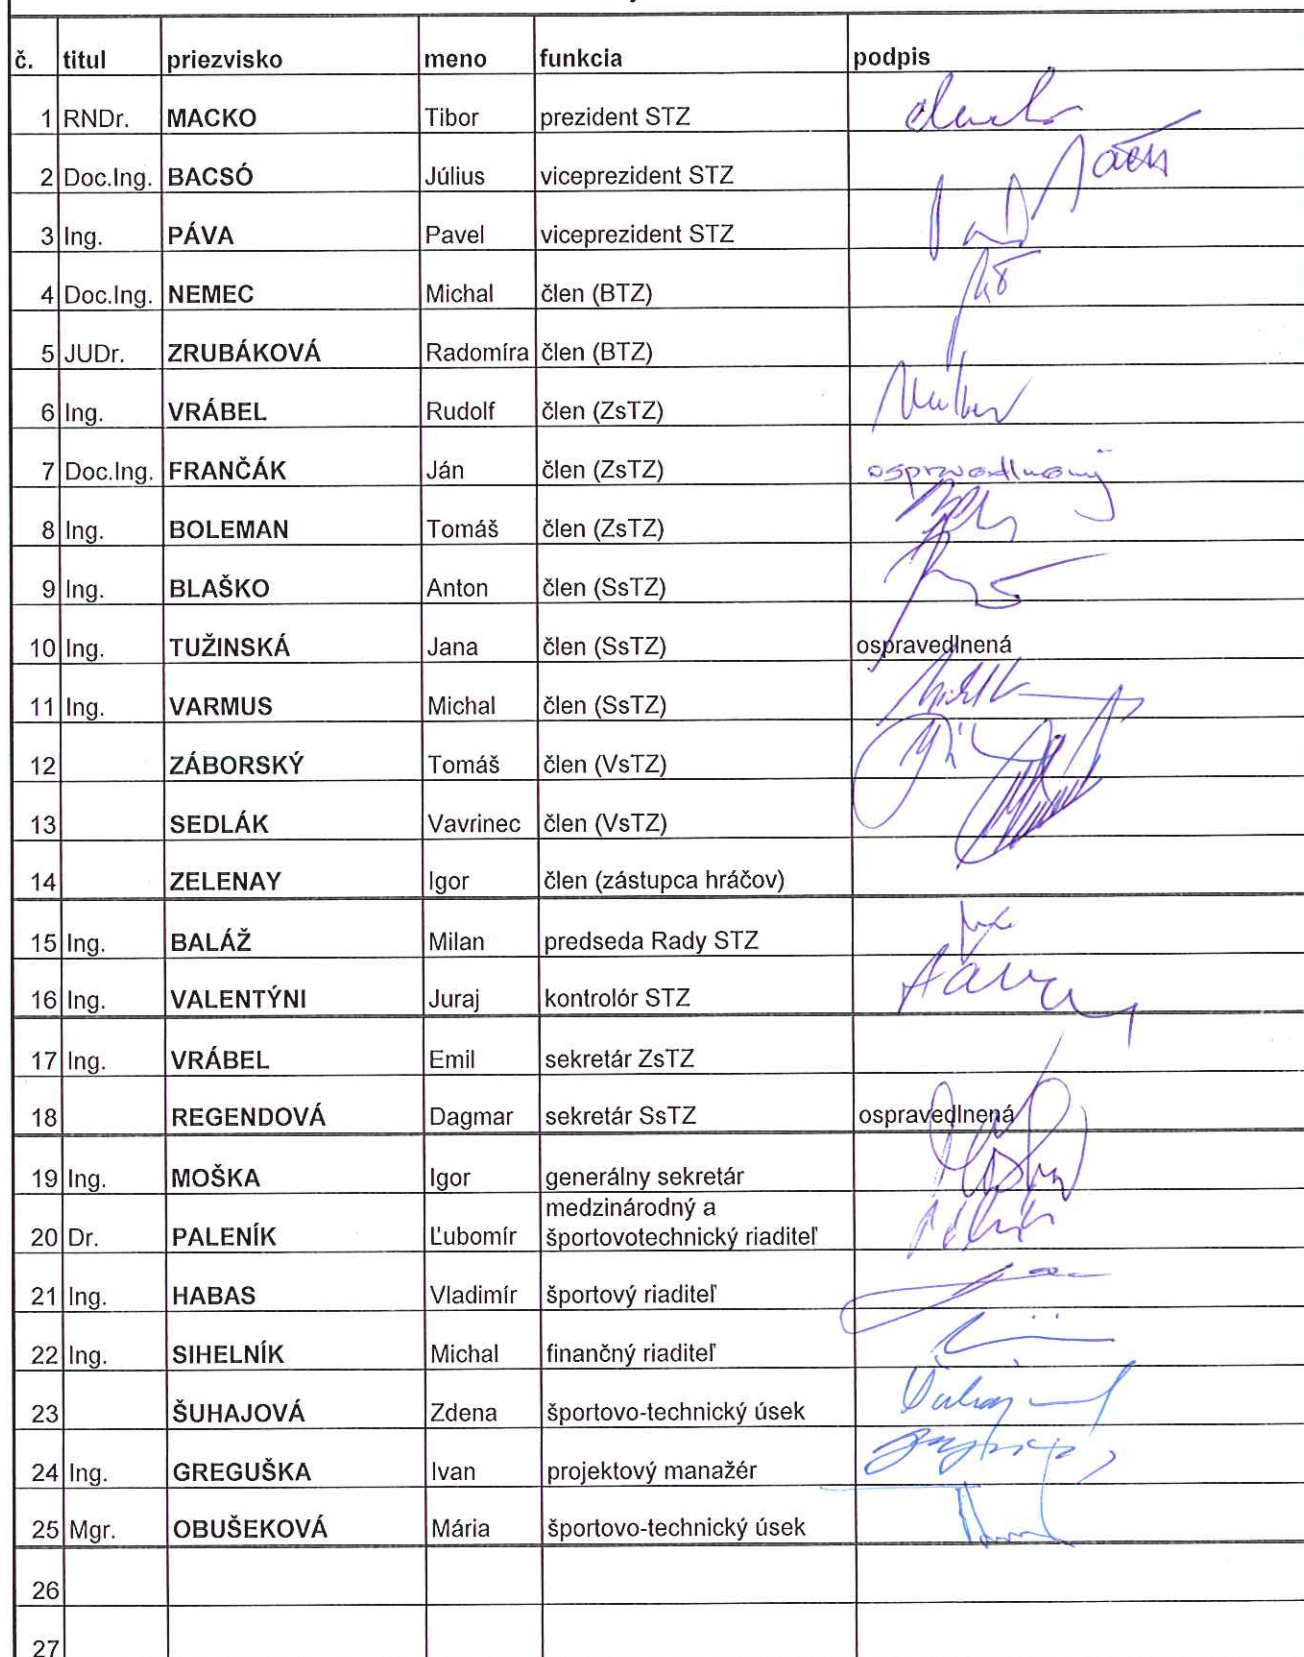 č. titul priezvisko meno funkcia podpis
1 RNDr. MACKO Tibor prezident STZ
2 Doc.Ing. BACSÓ Július viceprezident STZ
3 Ing. PÁVA Pavel viceprezident STZ
4 Doc.Ing. NEMEC Michal člen (BTZ)
5 JUDr. ZRUBÁKOVÁ Radomíra člen (BTZ)
6 Ing. VRÁBEL Rudolf člen (ZsTZ)
7 Doc.Ing. FRANČÁK Ján člen (ZsTZ) ospravedlnený
8 Ing. BOLEMAN Tomáš člen (ZsTZ)
9 Ing. BLAŠKO Anton člen (SsTZ)
10 Ing. TUŽINSKÁ Jana člen (SsTZ) ospravedlnená
11 Ing. VARMUS Michal člen (SsTZ)
12 ZÁBORSKÝ Tomáš člen (VsTZ)
13 SEDLÁK Vavrinec člen (VsTZ)
14 ZELENAY Igor člen (zástupca hráčov)
15 Ing. BALÁŽ Milan predseda Rady STZ
16 Ing. VALENTÝNI Juraj kontrolór STZ
17 Ing. VRÁBEL Emil sekretár ZsTZ
18 REGENDOVÁ Dagmar sekretár SsTZ ospravedlnená
19 Ing. MOŠKA Igor generálny sekretár
medzinárodný a
20 Dr. PALENÍK Ľubomír športovotechnický riaditeľ
21 Ing. HABAS Vladimír športový riaditeľ
22 Ing. SIHELNÍK Michal finančný riaditeľ
23 ŠUHAJOVÁ Zdena športovo-technický úsek
24 Ing. GREGUŠKA Ivan projektový manažér
25 Mgr. OBUŠEKOVÁ Mária športovo-technický úsek
26
27